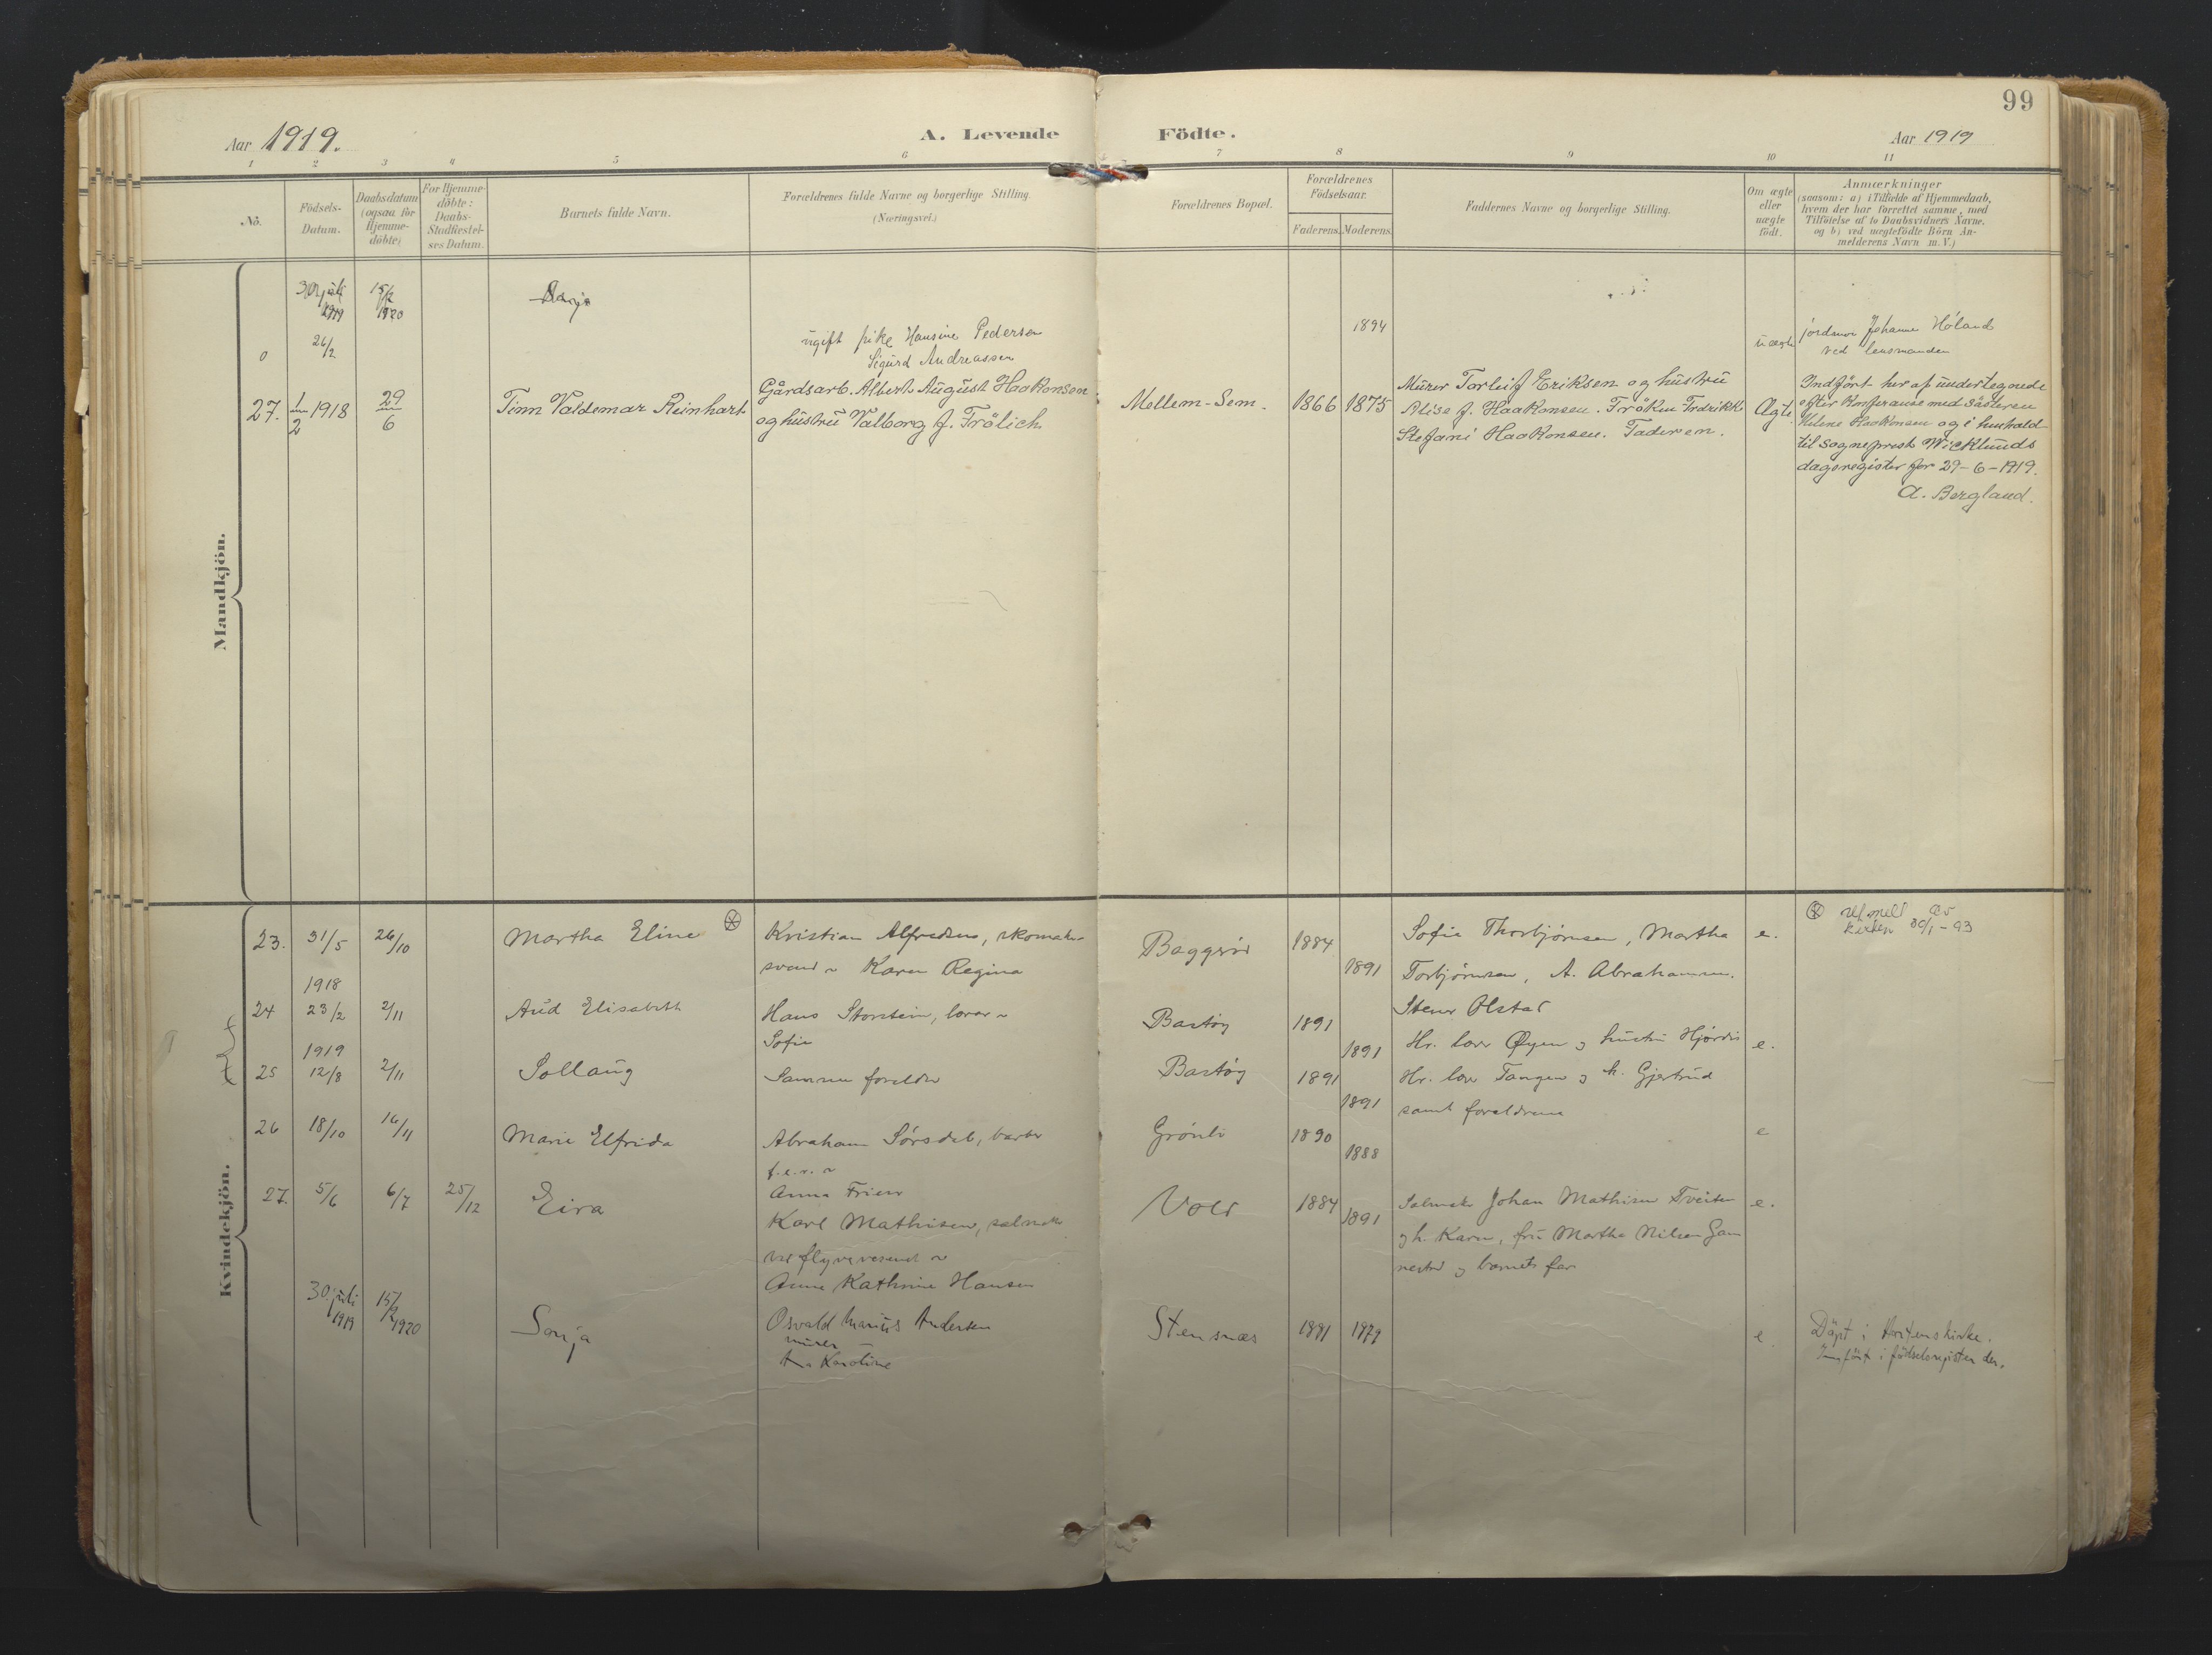 99
Aar 1919.
A. Levende
Födte.
Aar 1919
1 2 3 4 5 6 7 8 9 10 11
Nö.
Födsels-
Datum.
Daabsdatum
(ogsaa for
Hjemme-
döbte)
For Hjemme-
döbte:
Daabs-
Stadfæstel-
ses Datum.
Barnets fulde Navn.
Forældrenes fulde Navne og borgerlige Stilling
(Næringsvei.)
Forældrenes Bopæl.
Forældrenes
Födselsaar.
Faderens. Moderens.
Faddernes Navne og borgerlige Stilling.
Om ægte
eller
uægte
födt.
Anmærkninger
(saasom: a) i Tilfælde af Hjemmedaab,
hvem der har forrettet samme, med
Tilföielse af to Daabsvidners Navne.
og b) ved uægtefödte Börn An-
melderens Navn m. V.)
Mandkjön.
30 juli
1919
15/2
1920
Sonja
0
26/2
ugift pike Hansine Pedersen
Sigurd Andreassen
1894
uægte
jordmor Johanne Høland
ved lensmanden
27.
1/2 1918
29/6
Finn Valdemar Reinhart
Gårdsarb. Albert August Haakonsen
og hustru Valborg f. Frölich
Mellem-Sem.
1866
1875
Murer Torleif Eriksen og hustru
Alise f. Haakonsen. Fröken Fredrikke
Stefani Haakonsen. Faderen.
Ægte
Indført her af undertegnede
efter konferanse med søsteren
Helene Haakonsen og i henhold
til sogneprest Wicklunds
dagsregister for 29-6-1919.
A. Bergland.
Kvindekjön.
23.
31/5
26/10
Martha Eline
Kristian Alfredsen, skomaker-
svend ~ Karen Regina
Baggerød
1884
1891
Sofie Thorbjørnsen, Martha
Torbjørnsen, A. Abrahamsen.
e.
Utmeld av
kirken 30/1-93
24
1918
23/2
2/11
Aud Elisabeth
Hans Storstein, lærer ~
Sofie
Bastøy
1891
1891
Stener Olstad
Hr. lærer Øyen og hustru Hjørdis
e.
25
1919
12/8
2/11
Sollaug
Samme forældre
Bastøy
1891
1891
Hr. lærer Tangen og h. Gjertrud
samt forældrene
26
18/10
16/11
Marie Elfrida
Abraham Sørsdal, barber
f.e.v. ~
Anna
Grønli
1890
1888
e
27.
5/6
6/7
25/12
Eira
Karl Mathisen, salmaker
ved flyvevesenet ~
Anne Kathrine Hansen
Vold
1884
1891
Salmaker Johan Mathisen Tveiten
og h. Karen, fru Martha Nilsen Gan
nestad og barnets far
e.
30 juli
1919
15/2
1920
Sonja
Osvald Marius Andersen
murer
Karoline
Stensnæs
1891
1879
e
Døpt i Hortens kirke.
Indført i fødselsregister der.